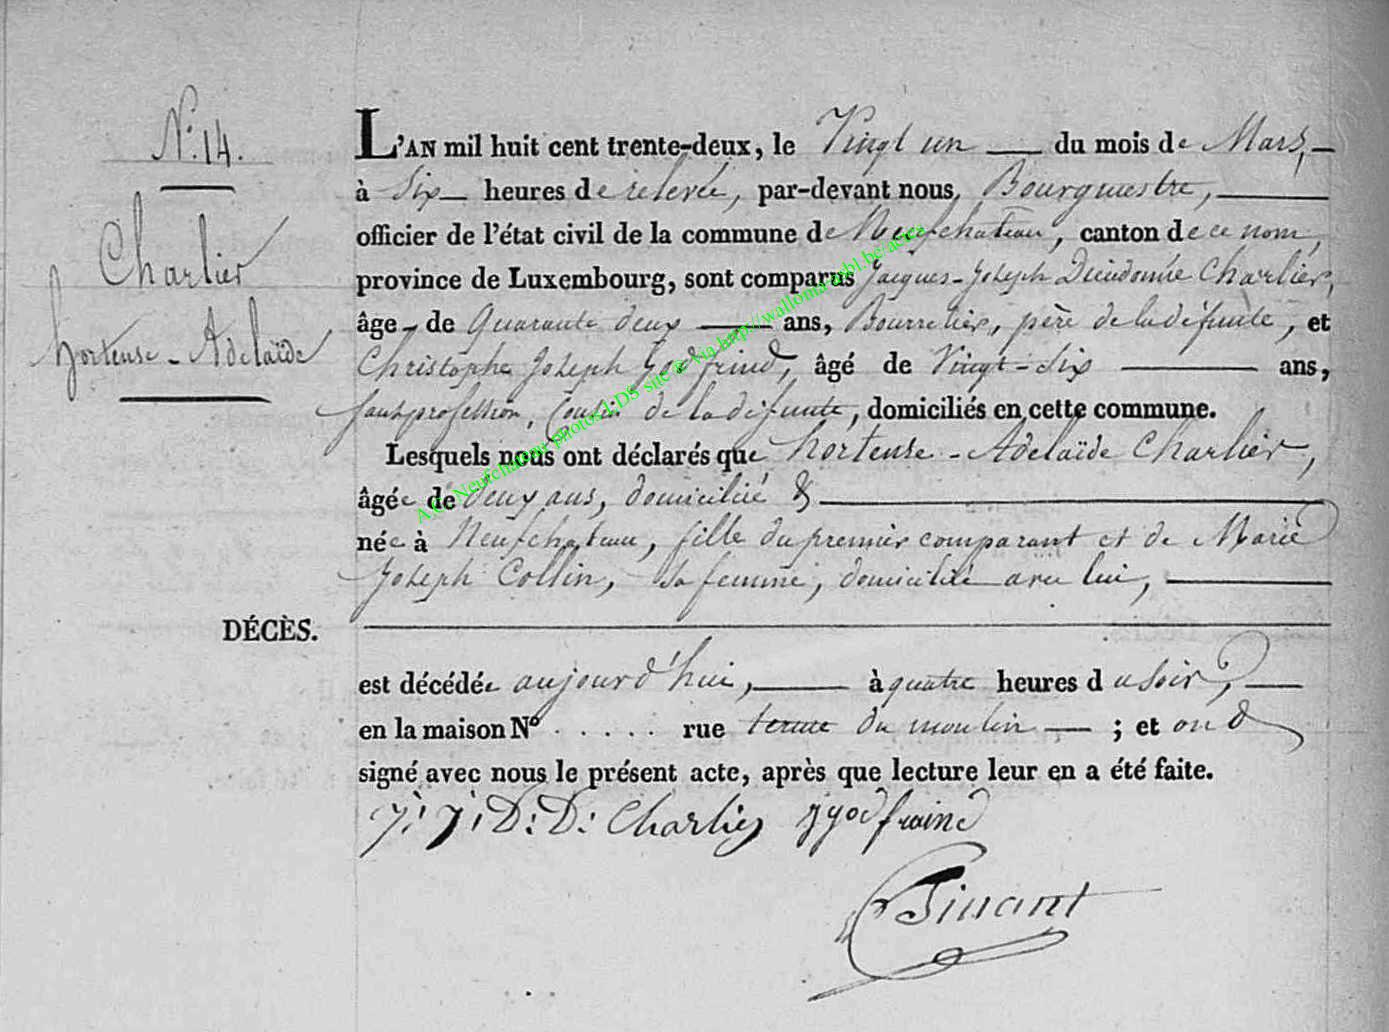 N.° 14.
Charlier
hortense - Adelaïde
L'AN mil huit cent trente-deux, le Vingt un du mois de Mars,
à Six heures de relevée, par-devant nous, Bourgmestre,
officier de l'état civil de la commune de Neufchateau, canton de ce nom,
province de Luxembourg, sont comparus Jacques-Joseph Dieudonnée Charlier,
âgé de Quarante deux ans, Bourrelier, père de la défunte, et
Christophe Joseph Godfrind, âgé de Vingt-Six ans,
sans profession, Cousin de la défunte, domiciliés en cette commune.
Lesquels nous ont déclarés que hortense - Adelaïde Charlier,
âgée de deux ans, domiciliée &
née à Neufchateau, fille du premier comparant et de Marie
Joseph Collin, sa femme, domiciliée avec lui,
DÉCÈS.
est décédée aujourd'hui, à quatre heures du soir,
en la maison N° . . . . . rue du moulin ; et ond
signé avec nous le présent acte, après que lecture leur en a été faite.
J: J: D: D: Charlier godfraind
A.C. Neufchateau photos LDS sur a via http://walloma.wbl.be/actes